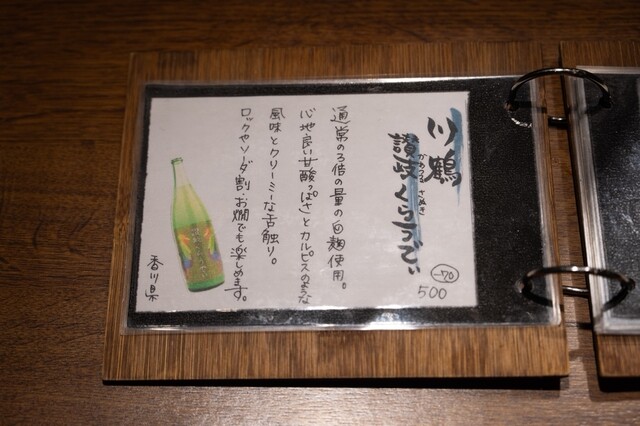 川鶴
讃岐くらうでぃ
かわつる さぬき
-70
500
通常の3倍の量の白麹使用。
心地良い甘酸っぱさとカルピスのような
風味とクリーミーな舌触り。
ロックやソーダ割・お燗でも楽しめます。
香川県